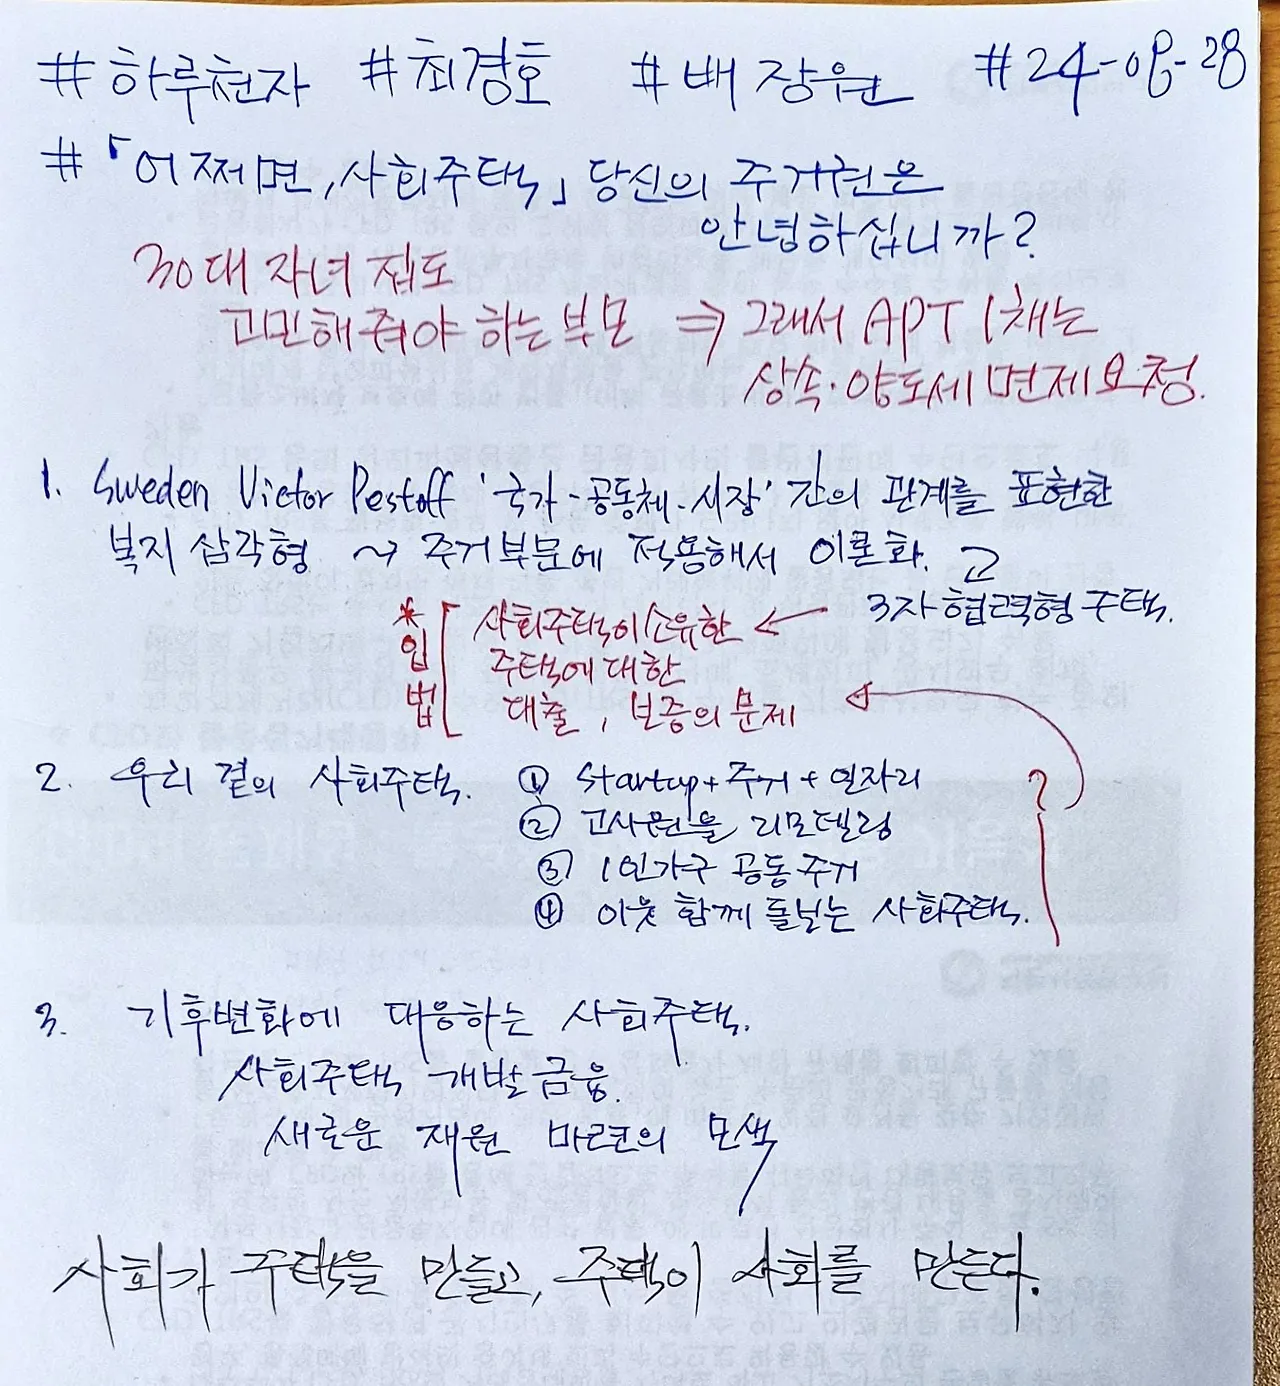 #하루천자 #최경호 #배장원 #24-08-28
#「어쩌면, 사회주택」 당신의 주거권은
안녕하십니까?
30대 자녀 집도
고민해줘야 하는 부모 ⇒ 그래서 APT 1채는
상속·양도세 면제요청.
1. Sweden Victor Pestoff '국가-공동체-시장' 간의 관계를 표현한
복지 삼각형 ~> 주거부문에 적용해서 이론화.
3자협력형 주택.
*입법 [ 사회주택이 소유한 ←
주택에 대한
대출, 보증의 문제
2. 우리 곁의 사회주택. ① startup+주거+일자리
② 고시원을 리모델링
③ 1인가구 공동주거
④ 이웃 함께 돌보는 사회주택.
3. 기후변화에 대응하는 사회주택.
사회주택 개발금융.
새로운 재원 마련의 모색
사회가 주택을 만들고, 주택이 사회를 만든다.